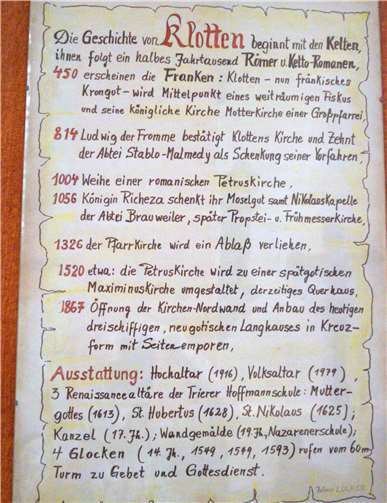 Die Geschichte von Klotten beginnt mit den Kelten,
ihnen folgt ein halbes Jahrtausend Römer u. Kelto-Romanen,
450 erscheinen die Franken: Klotten - nun fränkisches
Krongut - wird Mittelpunkt eines weiträumigen Fiskus
und seine königliche Kirche Mutterkirche einer Großpfarrei,
814 Ludwig der Fromme bestätigt Klottens Kirche und Zehnt
der Abtei Stablo-Malmedy als Schenkung seiner Vorfahren,
1004 Weihe einer romanischen Petruskirche,
1056 Königin Richeza schenkt ihr Moselgut samt Nikolauskapelle
der Abtei Brauweiler, später Propstei- u. Frühmesserkirche,
1326 der Pfarrkirche wird ein Ablaß verliehen,
1520 etwa: die Petruskirche wird zu einer spätgotischen
Maximinuskirche umgestaltet, derzeitiges Querhaus,
1867 Öffnung der Kirchen-Nordwand und Anbau des heutigen
dreischiffigen, neugotischen Langhauses in Kreuz-
form mit Seitenemporen,
Ausstattung: Hochaltar (1916), Volksaltar (1979),
3 Renaissancealtäre der Trierer Hoffmannschule: Mutter-
gottes (1613), St. Hubertus (1628), St. Nikolaus (1625);
Kanzel (17. Jh.); Wandgemälde (19. Jh, Nazarenerschule);
4 Glocken (14. Jh, 1549, 1549, 1593) rufen vom 60m
Turm zu Gebet und Gottesdienst.